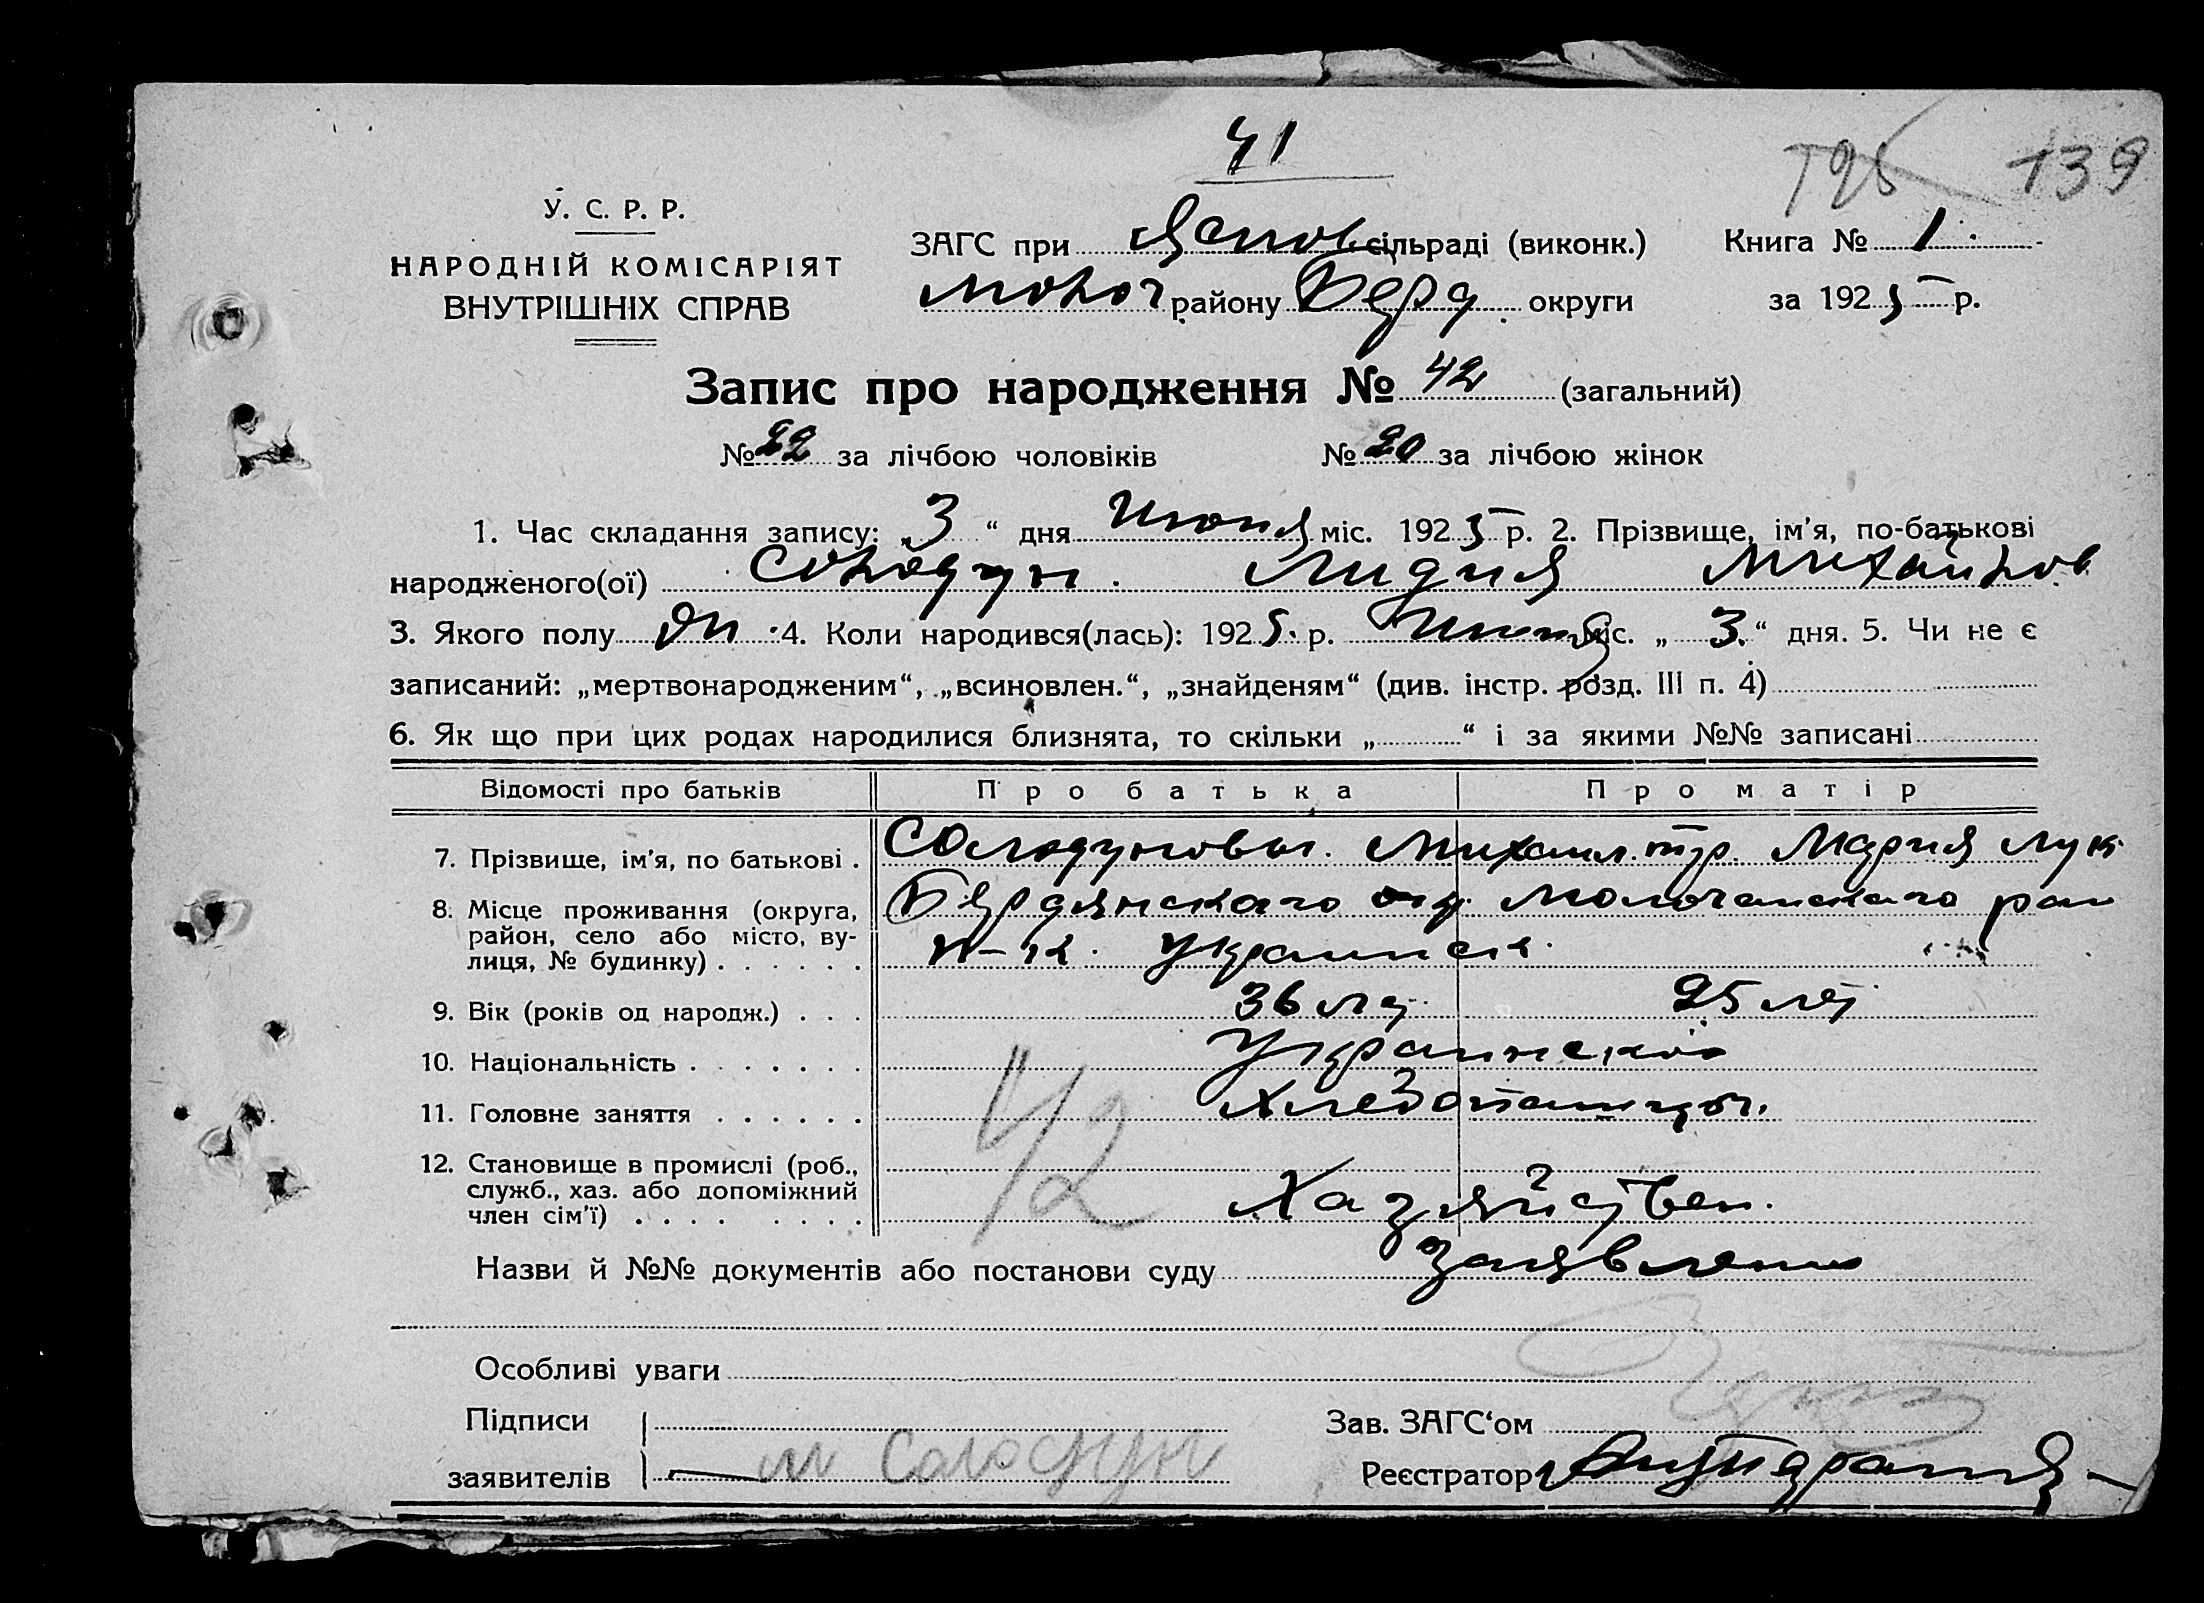 41
195 139
У. С. Р. Р.
НАРОДНІЙ КОМІСАРІЯТ
ВНУТРІШНІХ СПРАВ
ЗАГС при Яснов сільраді (виконк.) Книга № 1
Молоч району Берд. округи за 1925 р.
Запис про народження № 42 (загальний)
№ 22 за лічбою чоловіків № 20 за лічбою жінок
1. Час складання запису: „3“ дня Июня міс. 1925 р. 2. Прізвище, ім'я, по-батькові
народженого(ої) Солодун. Лидия Михайлов
3. Якого полу 4. Коли народився(лась): 1925 р. Июня міс. „3.“ дня. 5. Чи не є
записаний: „мертвонародженим“, „всиновлен.“, „знайденям“ (див. інстр. розд. III п. 4)
6. Як що при цих родах народилися близнята, то скільки „ “ і за якими №№ записані
Відомості про батьків Про батька Про матір
7. Прізвище, ім'я, по батькові . Солодуновы. Михаил. Мария Лук
8. Місце проживання (округа, Бердянского окр. Молочанскаго рай
район, село або місто, ву-
лиця, № будинку) . . . . . .
9. Вік (років од народж.) . . . 36 ле 25 лет
10. Національність . . . . . . . Украинской
11. Головне заняття . . . . . . Хлебопашцы.
12. Становище в промислі (роб.,
служб., хаз. або допоміжний
член сім'ї) . . . . . . . . Хазяйствен.
42
Назви й №№ документів або постанови суду заявление
Особливі уваги
Підписи Зав. ЗАГС'ом
заявителів м Солодун Реєстратор